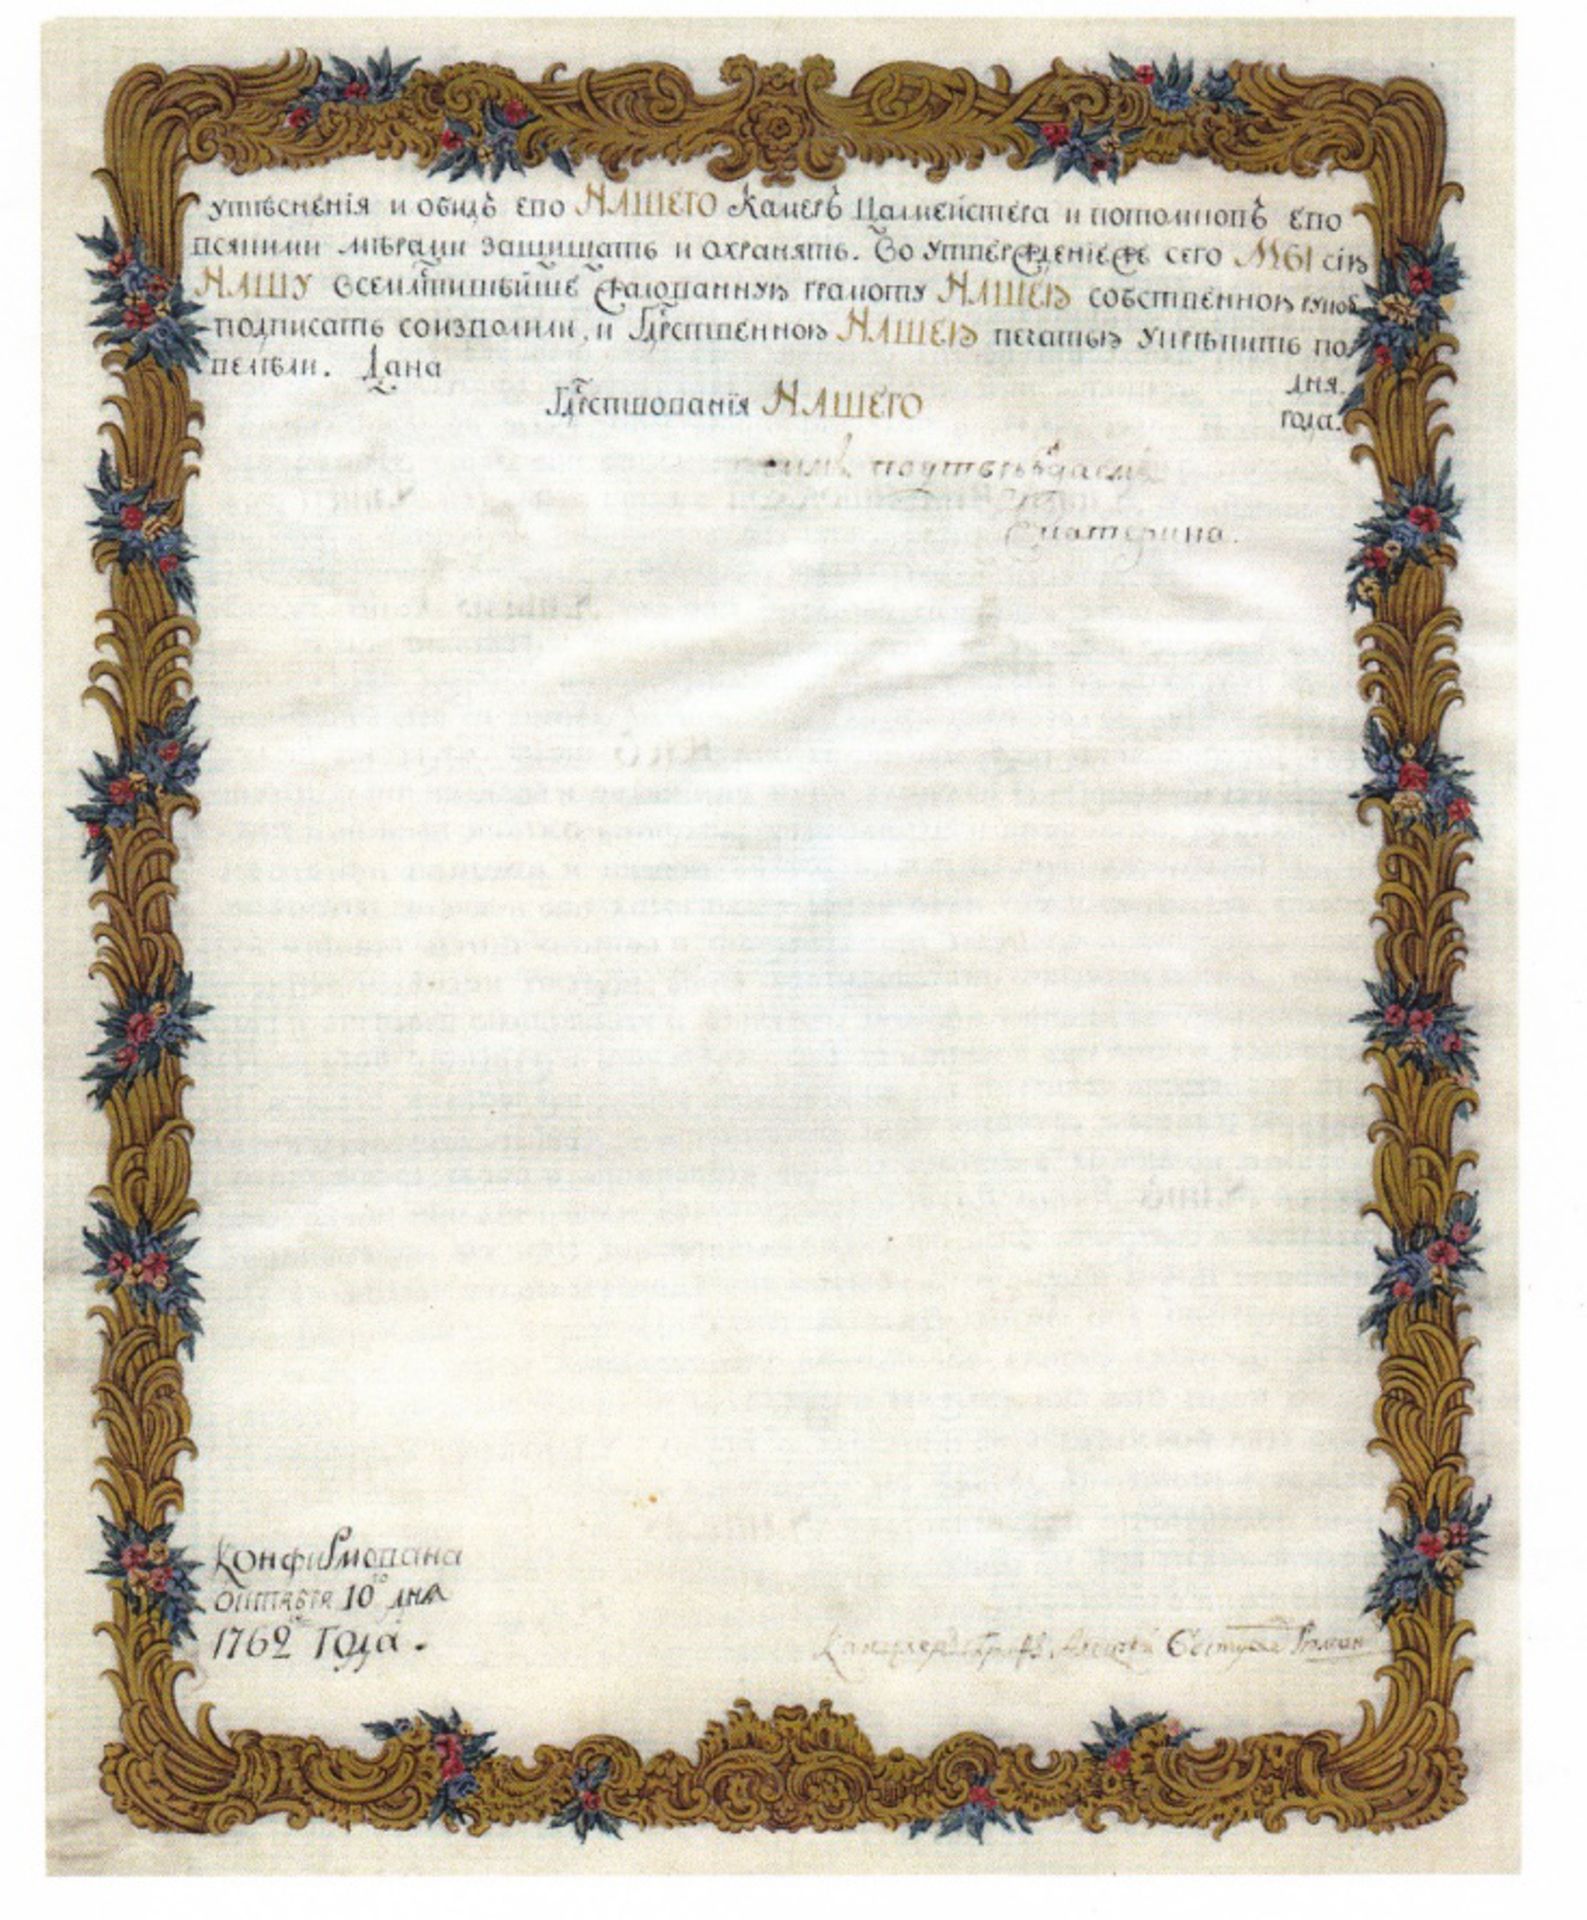 утѣсненія и обидъ его НАШЕГО Камеръ Цалмейстера и потомковъ его
всякими мѣрами защищать и охранять. Во утвержденіе же сего МЫ сію
НАШУ всемлтивѣйше жалованную грамоту НАШЕЮ собственною рукою
подписать соизволили, и Гдрственною НАШЕЮ печатью укрѣпить по
велѣли. Дана дня.
Гдрствованія НАШЕГО года.
симъ подтверждаемъ
Екатерина.
Конфирмована
октября 10го дня
1762 года.
Канцлеръ графъ Алексей Бестужевъ Рюмин